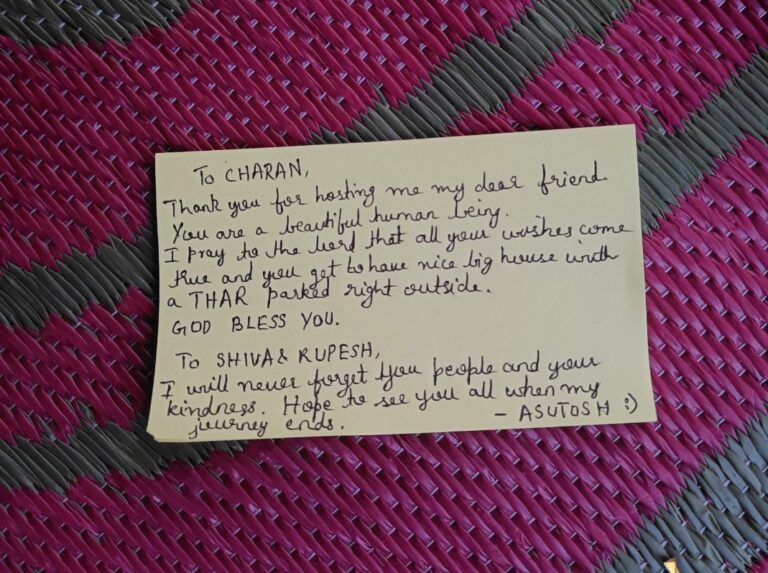 To CHARAN,
Thank you for hosting me my dear friend
You are a beautiful human being.
I pray to the Lord that all your wishes come
true and you get to have nice big house with
a THAR parked right outside.
GOD BLESS YOU.
To SHIVA & RUPESH,
I will never forget you people and your
kindness. Hope to see you all when my
journey ends. - ASUTOSH :)